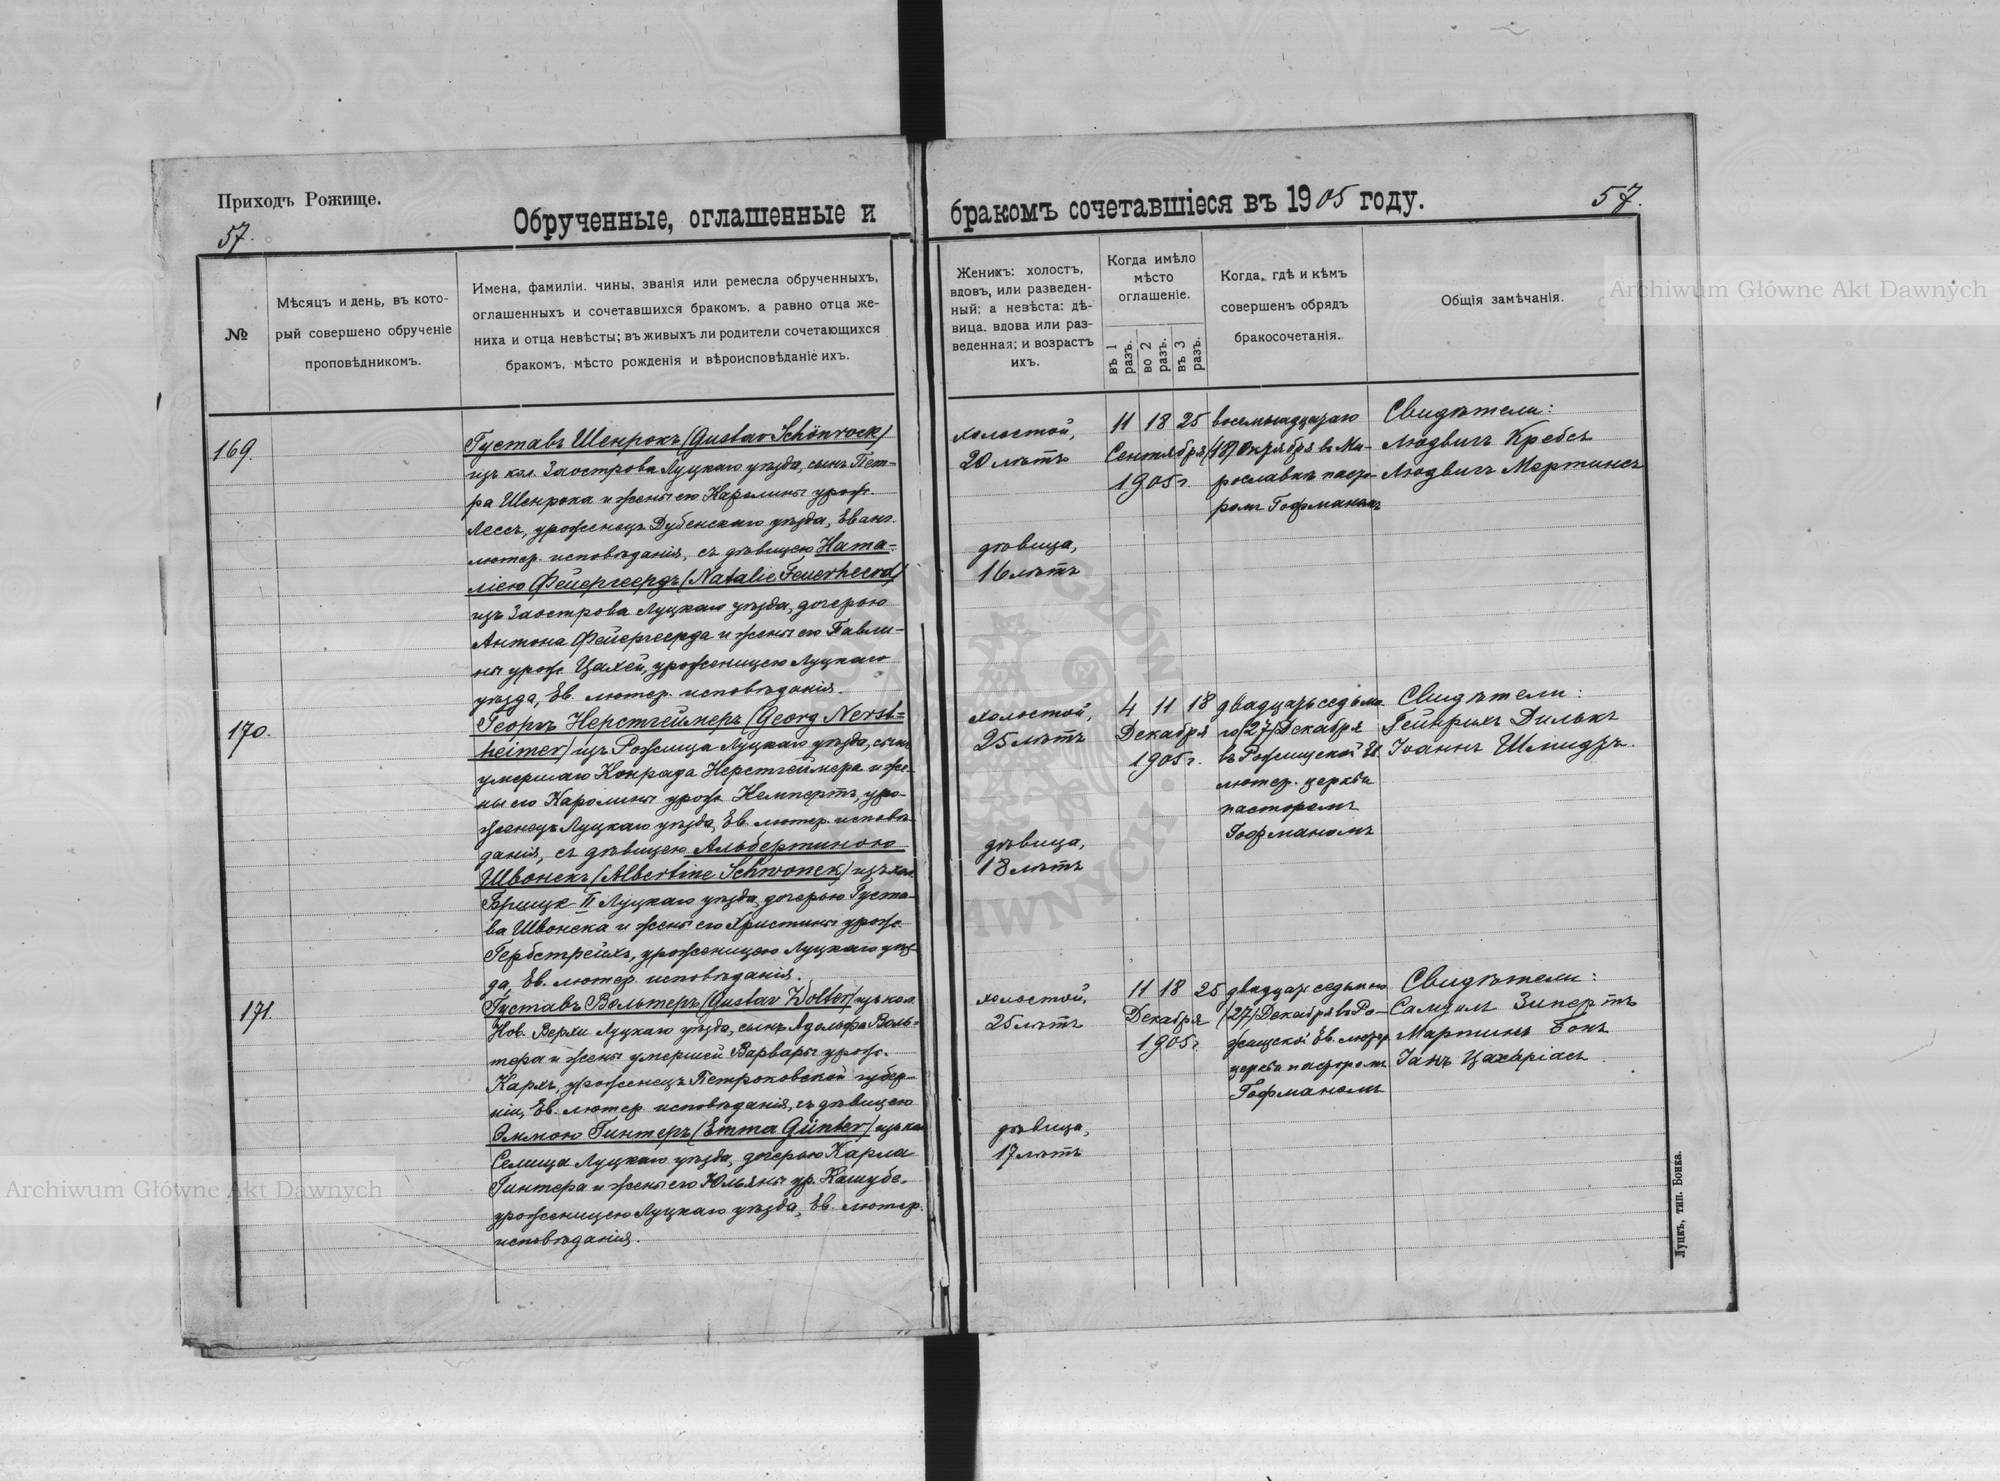 Приходъ Рожище.
57.
Обрученные, оглашенные и
№
Мѣсяцъ и день, въ кото-
рый совершено обрученіе
проповѣдникомъ.
Имена, фамиліи, чины, званія или ремесла обрученныхъ,
оглашенныхъ и сочетавшихся бракомъ, а равно отца же-
ниха и отца невѣсты; въ живыхъ ли родители сочетающихся
бракомъ, мѣсто рожденія и вѣроисповѣданіе ихъ.
169.
Густавъ Шенрокъ (Gustav Schönrock)
изъ кол. Заострова Луцкаго уѣзда, сынъ Пет-
ра Шенрока и жены его Каролины урож.
Лессъ, уроженецъ Дубенскаго уѣзда, Еванг.
лютер. исповѣданія, съ дѣвицею Ната-
ліею Фейергеердъ (Natalie Feuerheerd)
изъ Заострова Луцкаго уѣзда, дочерью
Антона Фейергеерда и жены его Павли-
ны урож. Цахей, уроженицею Луцкаго
уѣзда, Ев. лютер. исповѣданія.
170.
Георгъ Нерстгеймеръ (Georg Nerst-
heimer) изъ Рожища Луцкаго уѣзда, сынъ
умершаго Конрада Нерстгеймера и же-
ны его Каролины урож. Немпертъ, уро-
женецъ Луцкаго уѣзда, Ев. лютер. исповѣ-
данія, съ дѣвицею Альбертиною
Швонекъ (Albertine Schwonek) изъ кол.
II Луцкаго уѣзда, дочерью Густа-
ва Швонека и жены его Христины урож.
Гербстрейхъ, уроженицею Луцкаго уѣз-
да, Ев. лютер. исповѣданія.
171.
Густавъ Вольтеръ (Gustav Wolter) изъ кол.
Нов. Верхи Луцкаго уѣзда, сынъ Адольфа Воль-
тера и жены умершей Варвары урож.
Кархъ, уроженецъ Петроковской губер-
ніи, Ев. лютер. исповѣданія, съ дѣвицею
Эммою Гинтеръ (Emma Günter) изъ кол.
Селища Луцкаго уѣзда, дочерью Карла
Гинтера и жены его Юльяны ур. Кашубе,
уроженицею Луцкаго уѣзда, Ев. лютер.
исповѣданія.
бракомъ сочетавшіеся въ 1905 году.
57.
Женихъ: холостъ,
вдовъ, или разведен-
ный; а невѣста: дѣ-
вица, вдова или раз-
веденная; и возрастъ
ихъ.
Когда имѣло
мѣсто
оглашеніе.
въ 1 разъ.
во 2 разъ.
въ 3 разъ.
Когда, гдѣ и кѣмъ
совершенъ обрядъ
бракосочетанія.
Общія замѣчанія.
холостой,
20 лѣтъ
дѣвица,
16 лѣтъ
11 18 25
Сентября
1905 г.
восемнадцатаго
(18) Октября в Ми-
рославкѣ пасто-
ромъ Гофманомъ
Свидѣтели:
Людвигъ Кребсъ
Людвигъ Мертинсъ
холостой,
25 лѣтъ
дѣвица,
18 лѣтъ
4 11 18
Декабря
1905 г.
двадцать седьма-
го (27) Декабря
въ Рожищской Ев.
лютер. церкви
пасторомъ
Гофманомъ
Свидѣтели:
Гейнрихъ Дилькъ
Іоаннъ Шмидтъ.
холостой,
25 лѣтъ
дѣвица,
17 лѣтъ
11 18 25
Декабря
1905 г.
двадцать седьмаго
(27) Декабря въ Ро-
жищской Ев. лютер.
церкви пасторомъ
Гофманомъ
Свидѣтели:
Самуилъ Зипертъ
Мартинъ Бонъ
Іанъ Цахаріасъ
Луцкъ, тип. Бонка.
Archiwum Główne Akt Dawnych
Archiwum Główne Akt Dawnych